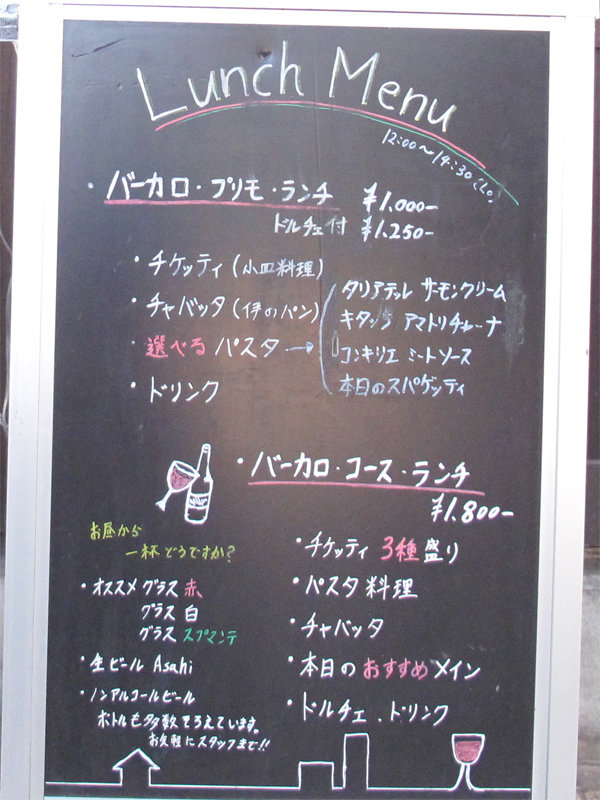 Lunch Menu
12:00～14:30(Lo.
・バーカロ・プリモ・ランチ ¥1.000-
ドルチェ付 ¥1.250-
・チケッティ(小皿料理)
・チャバッタ(伊のパン)
・選べるパスタ→
タリアテッレ サーモンクリーム
キタッラ アマトリチャーナ
コンキリエ ミートソース
本日のスパゲッティ
・ドリンク
・バーカロ・コース・ランチ
¥1.800-
・チケッティ 3種盛り
・パスタ料理
・チャバッタ
・本日のおすすめメイン
・ドルチェ、ドリンク
お昼から
一杯どうですか?
・オススメグラス赤、
グラス白
グラス スプマンテ
・生ビール Asahi
・ノンアルコールビール
ボトルも多数そろえています。
お気軽にスタッフまで!!